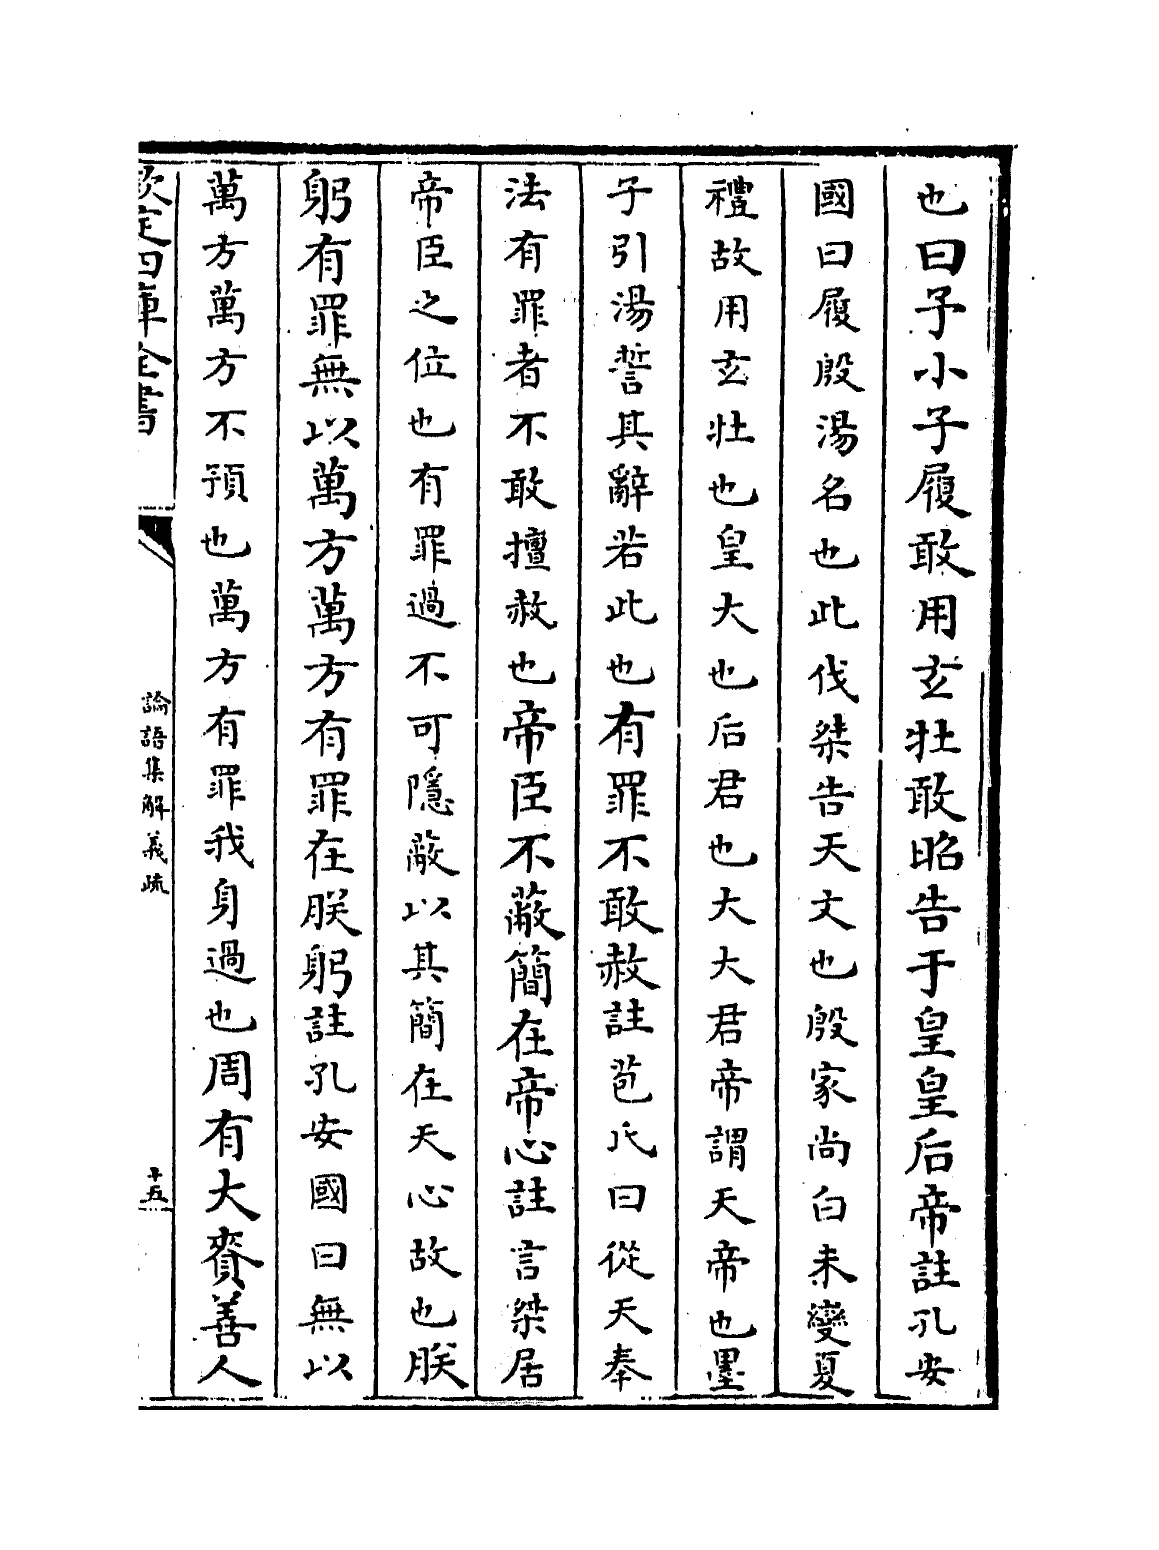 也曰予小子履敢用玄牡敢昭告于皇皇后帝註孔安
國曰履殷湯名也此伐桀告天文也殷家尚白未變夏
禮故用玄牡也皇大也后君也大大君帝謂天帝也墨
子引湯誓其辭若此也有罪不敢赦註苞氏曰從天奉
法有罪者不敢擅赦也帝臣不蔽簡在帝心註言桀居
帝臣之位也有罪過不可隱蔽以其簡在天心故也朕
躬有罪無以萬方萬方有罪在朕躬註孔安國曰無以
萬方萬方不預也萬方有罪我身過也周有大賚善人
欽定四庫全書
論語集解義疏
十五